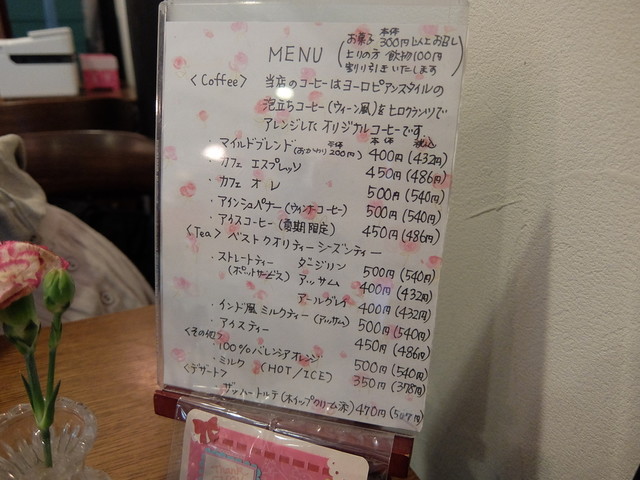 MENU
(お菓子 本体300円以上お召し
上りの方 飲物100円
割り引きいたします)
<Coffee> 当店のコーヒーはヨーロピアンスタイルの
泡立ちコーヒー(ウィーン風)をヒロクランツで
アレンジしたオリジナルコーヒーです。
本体 税込
・マイルドブレンド(おかわり 本体200円) 400円(432円)
・カフェ エスプレッソ 450円(486円)
・カフェ オ レ 500円(540円)
・アインシュペナー(ウィンナーコーヒー) 500円(540円)
・アイスコーヒー(夏期限定) 450円(486円)
<Tea> ベストクオリティーシーズンティー
・ストレートティー ダージリン 500円(540円)
(ポットサービス) アッサム 400円(432円)
アールグレイ 400円(432円)
・インド風ミルクティー(アッサム) 500円(540円)
・アイスティー 450円(486円)
<その他>
・100%バレンシアオレンジ 500円(540円)
・ミルク (HOT/ICE) 350円(378円)
<デザート>
ザッハートルテ(ホイップクリーム添) 470円(507円)